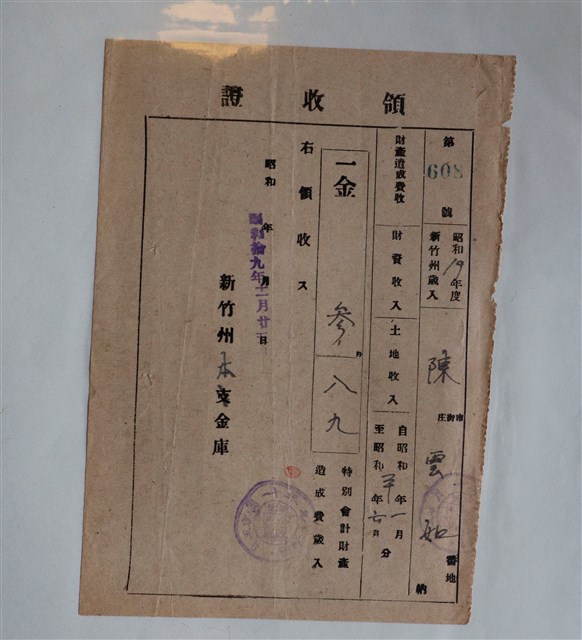 領收證
第608號
昭和19年度
新竹州歲入
陳雲如
市街庄
番地
納
財產造成費收
財費收入
土地收入
自昭和 年一月
至昭和 年六月
分
一金
參円八九
特別會計財產
造成費歲入
右領收ス
昭和 年 月 日
昭和拾九年十一月廿一
新竹州本支金庫